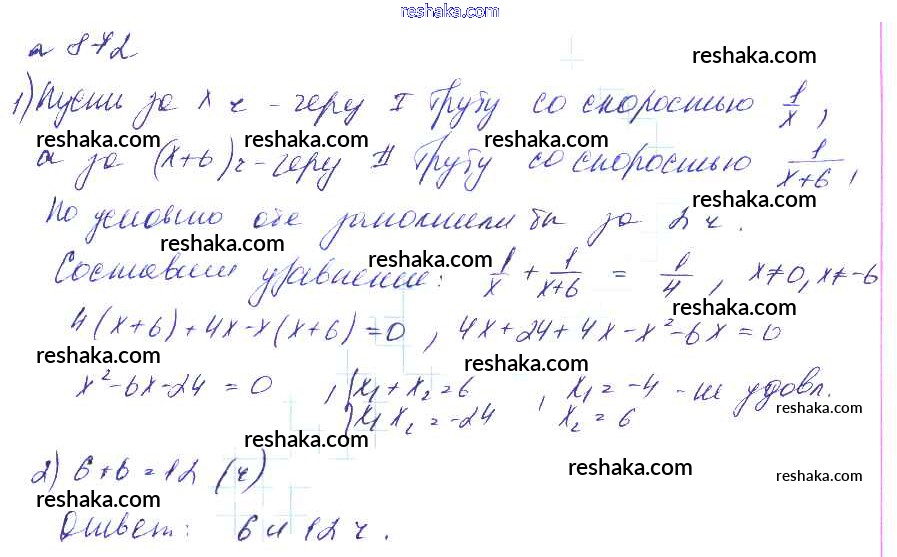 reshaka.com
№ 872
reshaka.com
1) Пусть за x ч - через I трубу со скоростью 1/x,
reshaka.com reshaka.com reshaka.com reshaka.com
а за (x+6) ч - через II трубу со скоростью 1/(x+6),
reshaka.com
По условию обе заполнили бы за 2 ч.
reshaka.com reshaka.com
Составим уравнение: 1/x + 1/(x+6) = 1/4, x≠0, x≠-6
reshaka.com
4(x+6)+4x-x(x+6)=0, 4x+24+4x-x²-6x=0
reshaka.com reshaka.com
x²-6x-24=0, { x₁+x₂=6, x₁=-4 - не удовл.
x₁x₂=-24 x₂=6
reshaka.com
reshaka.com
2) 6+6=12 (ч)
reshaka.com reshaka.com reshaka.com
Ответ: 6 и 12 ч.